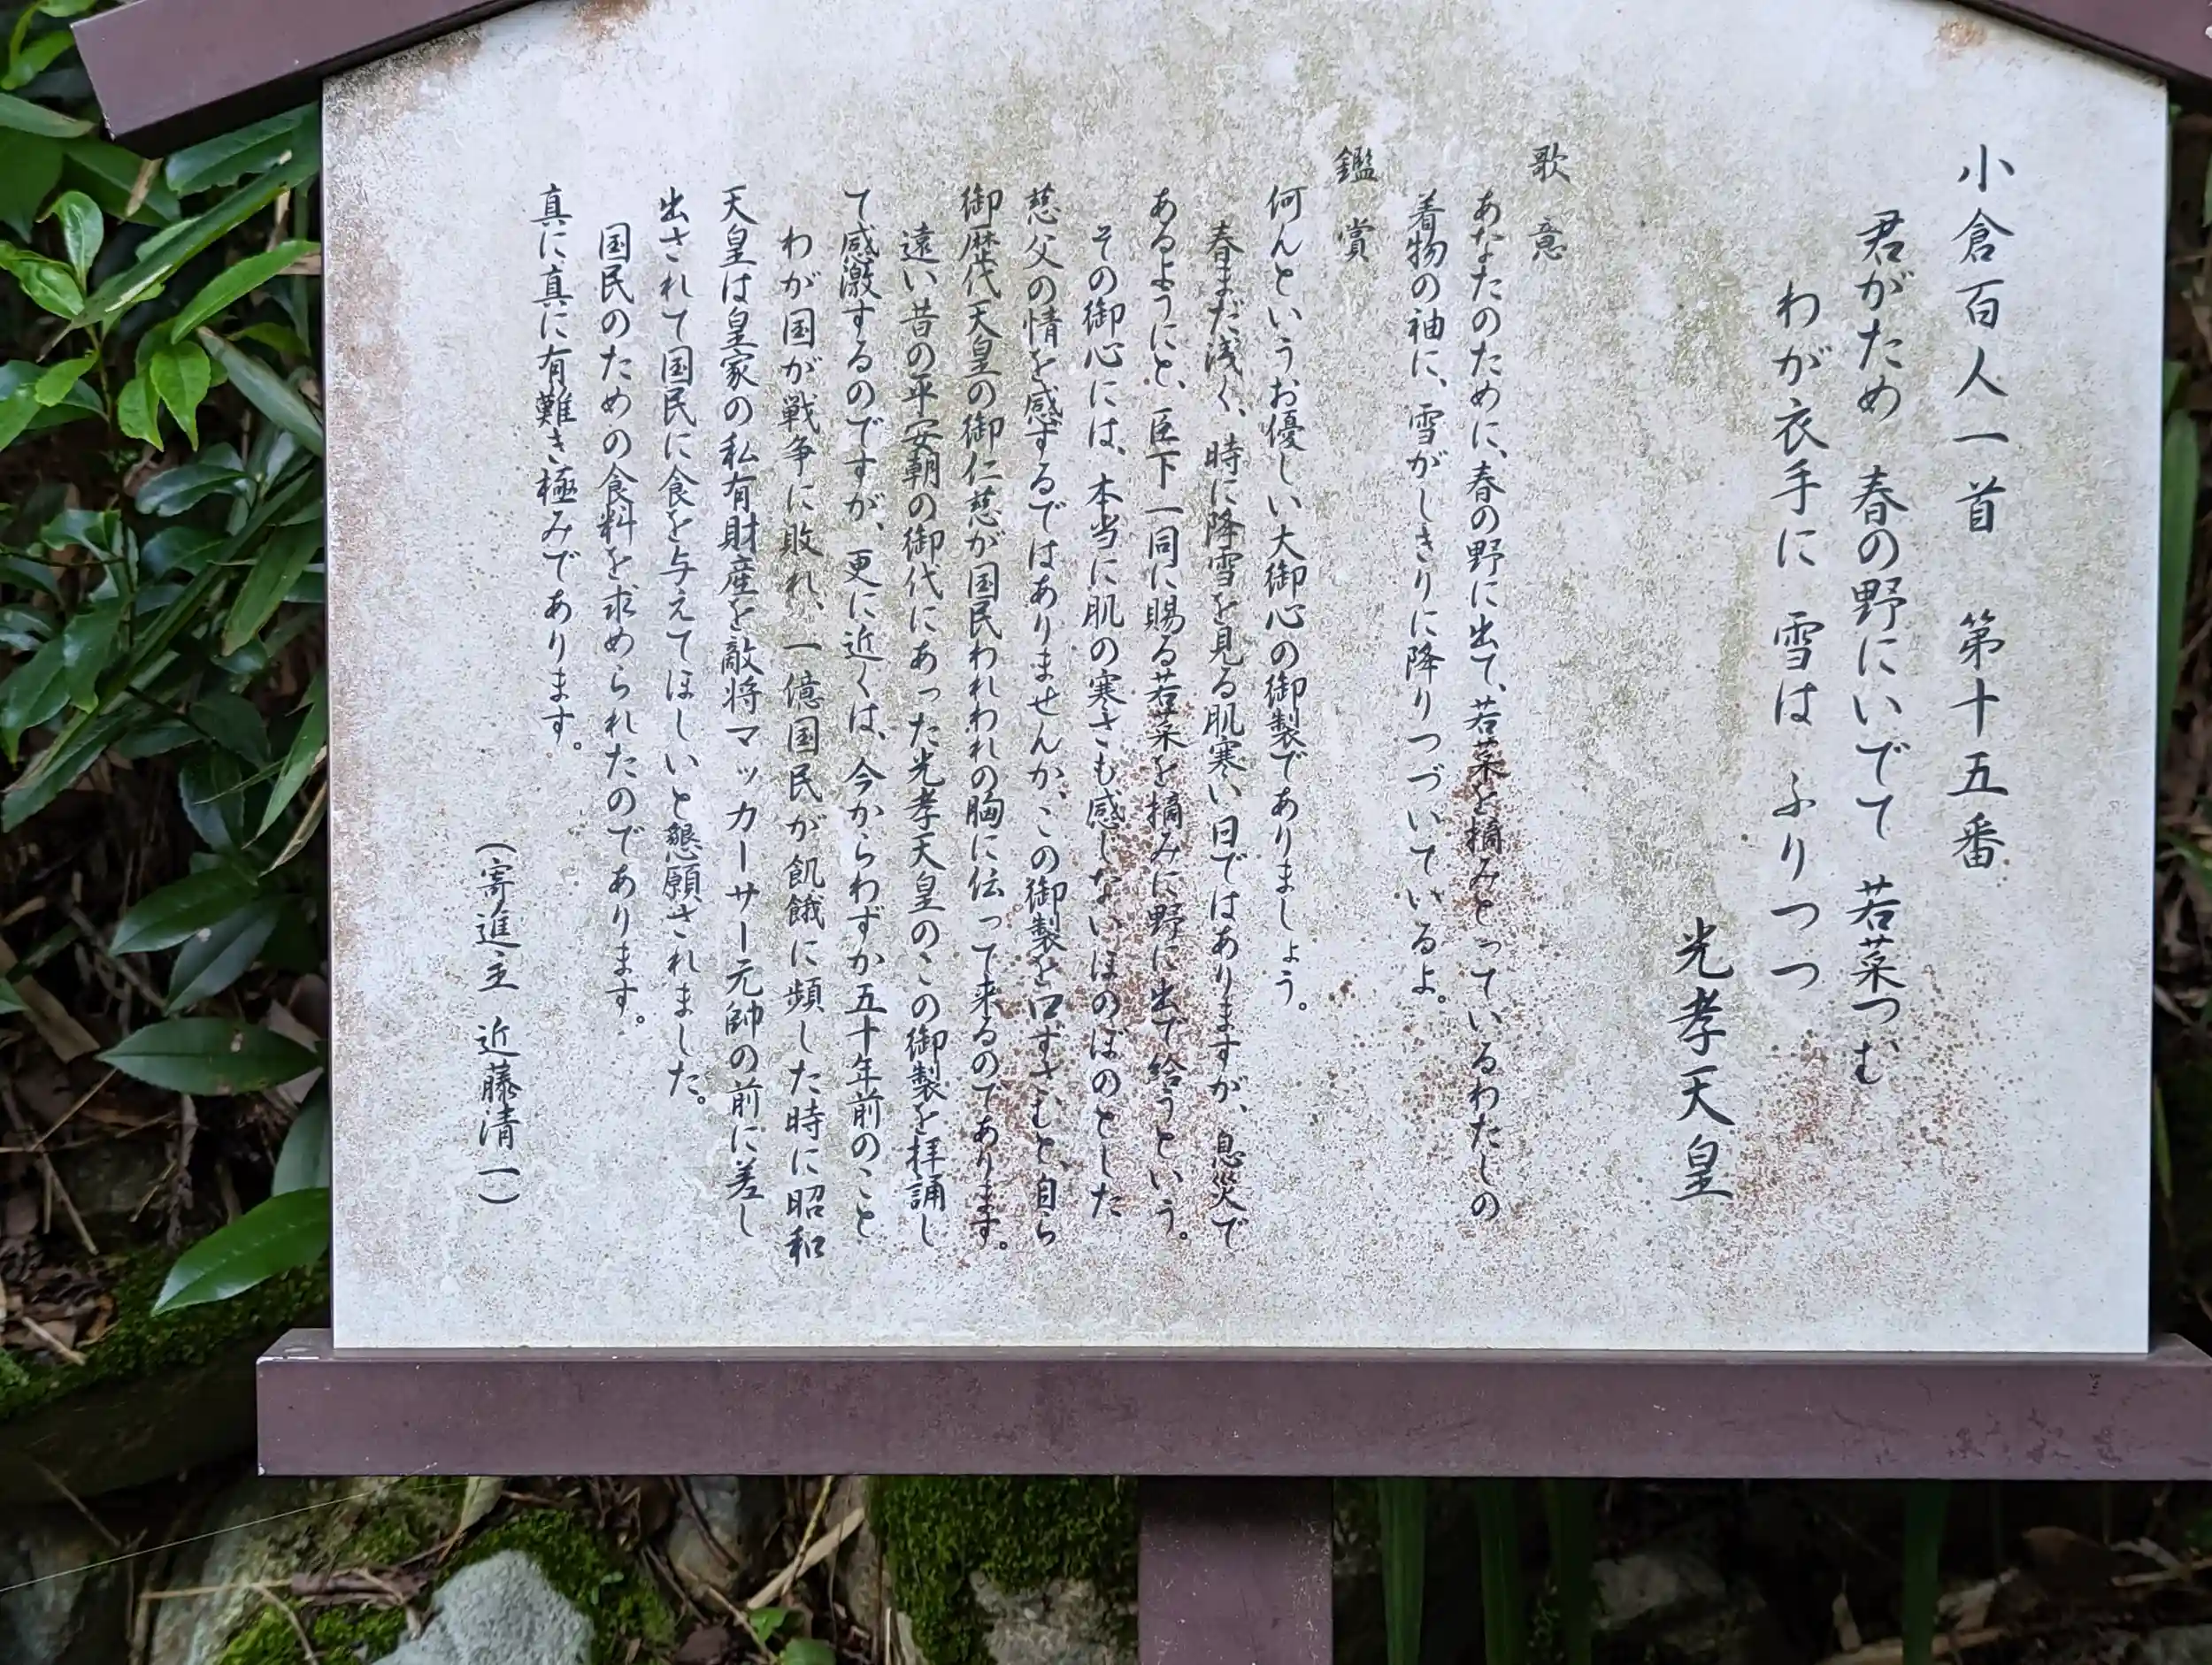 小倉百人一首　第十五番
君がため　春の野にいでて　若菜つむ
わが衣手に　雪は　ふりつつ
光孝天皇
歌　意
あなたのために、春の野に出て、若菜を摘みとっているわたしの
着物の袖に、雪がしきりに降りつづいているよ。
鑑　賞
何んというお優しい大御心の御製でありましょう。
春まだ浅く、時に降雪を見る肌寒い日ではありますが、息災で
あるようにと、臣下一同に賜る若菜を摘みに野に出て給うという。
その御心には、本当に肌の寒さも感じないほのぼのとした
慈父の情を感ずるではありませんか、この御製を口ずさむと、自ら
御歴代天皇の御仁慈が国民われわれの胸に伝って来るのであります。
遠い昔の平安朝の御代にあった光孝天皇のこの御製を拝誦し
て感激するのですが、更に近くは、今からわずか五十年前のこと
わが国が戦争に敗れ、一億国民が飢餓に頻した時に昭和
天皇は皇家の私有財産を敵将マッカーサー元帥の前に差し
出されて国民に食を与えてほしいと懇願されました。
国民のための食料を求められたのであります。
真に真に有難き極みであります。
（寄進主　近藤清一）